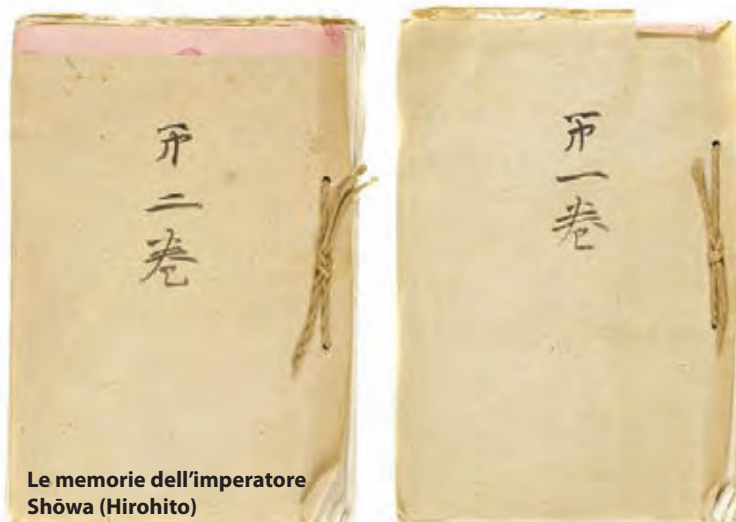 㐧一巻
㐧二巻
Le memorie dell'imperatore
Shōwa (Hirohito)